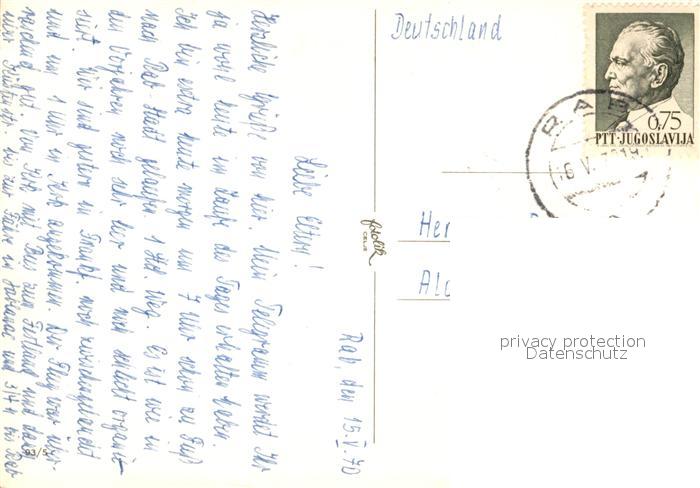 Rab, den 15.V.70
Liebe Eltern!
Herzliche Grüße von hier. Mein Telegramm werdet Ihr
ja wohl heute im Laufe des Tages erhalten haben.
Ich bin extra heute morgen um 7 Uhr schon zu Fuß
nach Rab-Stadt gelaufen. 1 Std. Weg. Es ist wie in
den Vorjahren noch sehr leer und noch schlecht organi-
siert. Wir sind gestern in Frankf. noch zwischengelandet
und um 1 Uhr in angekommen. Der Flug war über-
raschend gut. Von mit Bus zum Festland und dann
bis zur Fähre in Jablanac und 3/4 h bis Rab
93/5
fotolik
CELJE
Deutschland
0,75
PTT-JUGOSLAVIJA
RAB
Her
Alo
privacy protection
Datenschutz